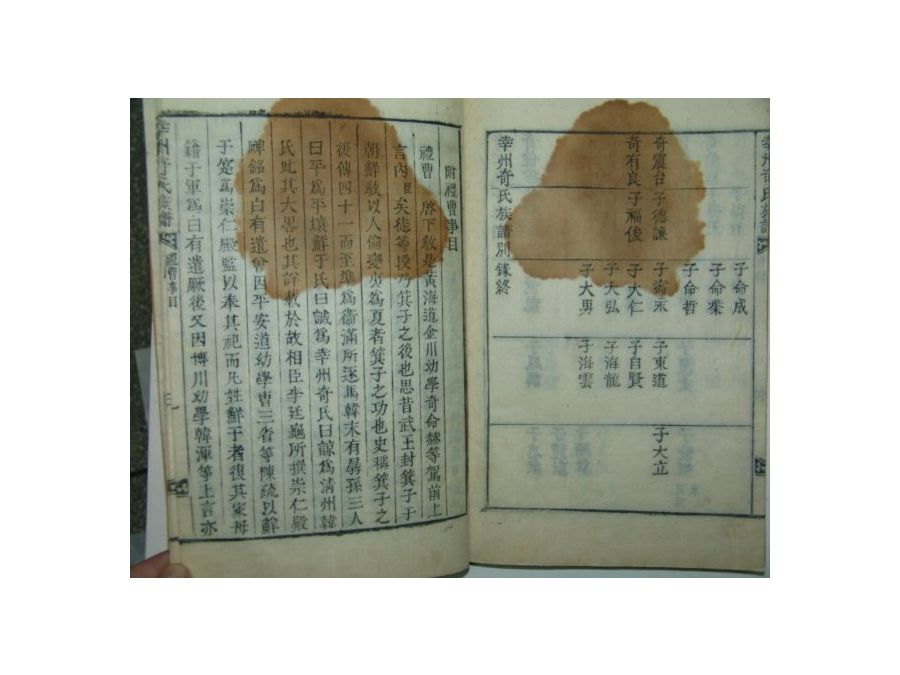 幸州奇氏族譜
子命成
子命業
子命哲
奇震台 子德謙 子東道 子大立
奇有良 子福俊 子大仁 子自賢
子大弘 子海龍
子大男 子海雲
幸州奇氏族譜別錄終
附禮曹事目
禮曹 啓下敎是黃海道金川幼學奇命赫等駕前上
言內臣矣徒等段乃箕子之後也思昔武王封箕子于
朝鮮敢以人倫變夷爲夏者箕子之功也史稱箕子之
後傳四十一而至準爲衛滿所逐馬韓末有孱孫三人
曰平爲平壤鮮于氏曰誠爲幸州奇氏曰諒爲淸州韓
氏此其大畧也其詳載於故相臣李廷龜所撰崇仁殿
碑銘爲白有遣曾因平安道幼學曺三省等陳疏以鮮
于寔爲崇仁殿監以奉其祀而凡姓鮮于者復其家毋
籍于軍爲白有遣厥後又因博川幼學韓渾等上言亦
幸州奇氏族譜 禮曹事目